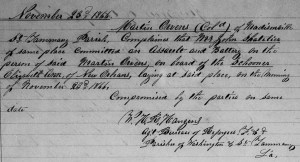 November 25d 1866.
Martin Owens (Cold) of Madisonville
St Tammany Parish. Complains that Mr John
of same place Committed an Assault and Battery on the
person of said Martin Owens, on board of the Schooner
of New Orleans, laying at said place, on the evening
of November 23d 1866.
Compromised by the parties on same
date
W. M. H.
Agt Bureau of Refugees F. & A
Parishes of Washington & St Tammany
La,